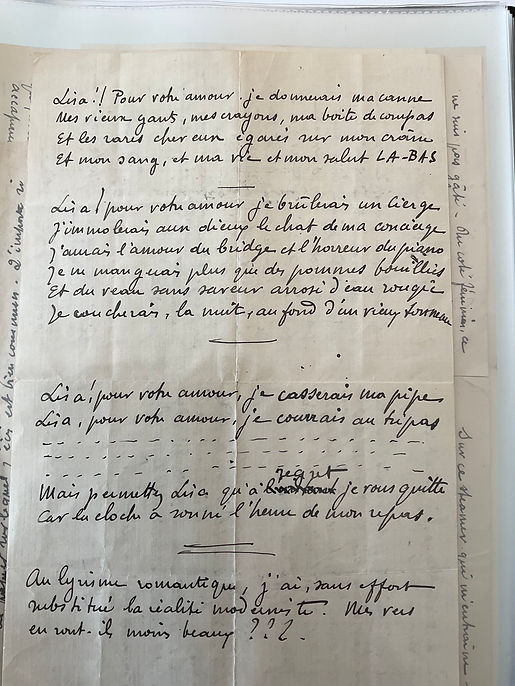 Lisa!! Pour votre amour je donnerais ma canne
Mes vieux gants, mes crayons, ma boite de compas
Et les rares cheveux égarés sur mon crâne
Et mon sang, et ma vie et mon salut LA-BAS
Lisa! pour votre amour je brûlerais un cierge
J'immolerais aux dieux le chat de ma concierge
J'aurais l'amour du bridge et l'horreur du piano
Je ne mangerais plus que des pommes bouillies
Et du veau sans saveur arrosé d'eau rougie
Je coucherais, la nuit, au fond d'un vieux tonneau
Lisa!, pour votre amour, je casserais ma pipe
Lisa, pour votre amour, je courrais au trépas
regret
Mais permettez Lisa qu'à je vous quitte
Car la cloche a sonné l'heure de mon repas.
Au lyrisme romantique, j'ai, sans effort
substitué la réalité moderniste. Mes vers
en sont-ils moins beaux ???
ne suis pas gâté - Du coté féminin, ce
Sur ce steamer qui m'entraîne
est bien commun -